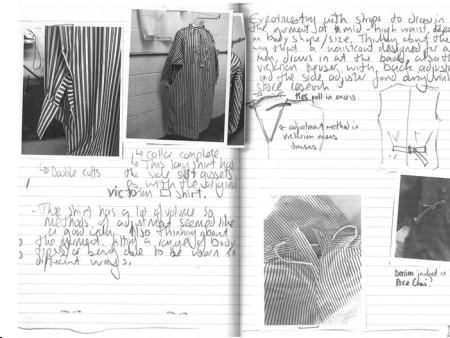 ↳ Double cuffs
↳ Collar complete
↳ This long shirt has
the side split gussets
as with the original
Victorian shirt.
- This shirt has a lot of volume so
methods of adjustment seemed like
a good idea. Also thinking about
the garment fitting a range of body
types or being able to be worn in
different ways.
Experimenting with straps to draw in
the garment at a mid-high waist, depe
on body shape/size. Thinking about the
way that a waistcoat designed for a
man, draws in at the back, also the
Victorian trouser with back adjust
and the side adjuster found
store research
this pull in excess.
↳ adjustment method in
Victorian mens
trousers
Denim jacket in